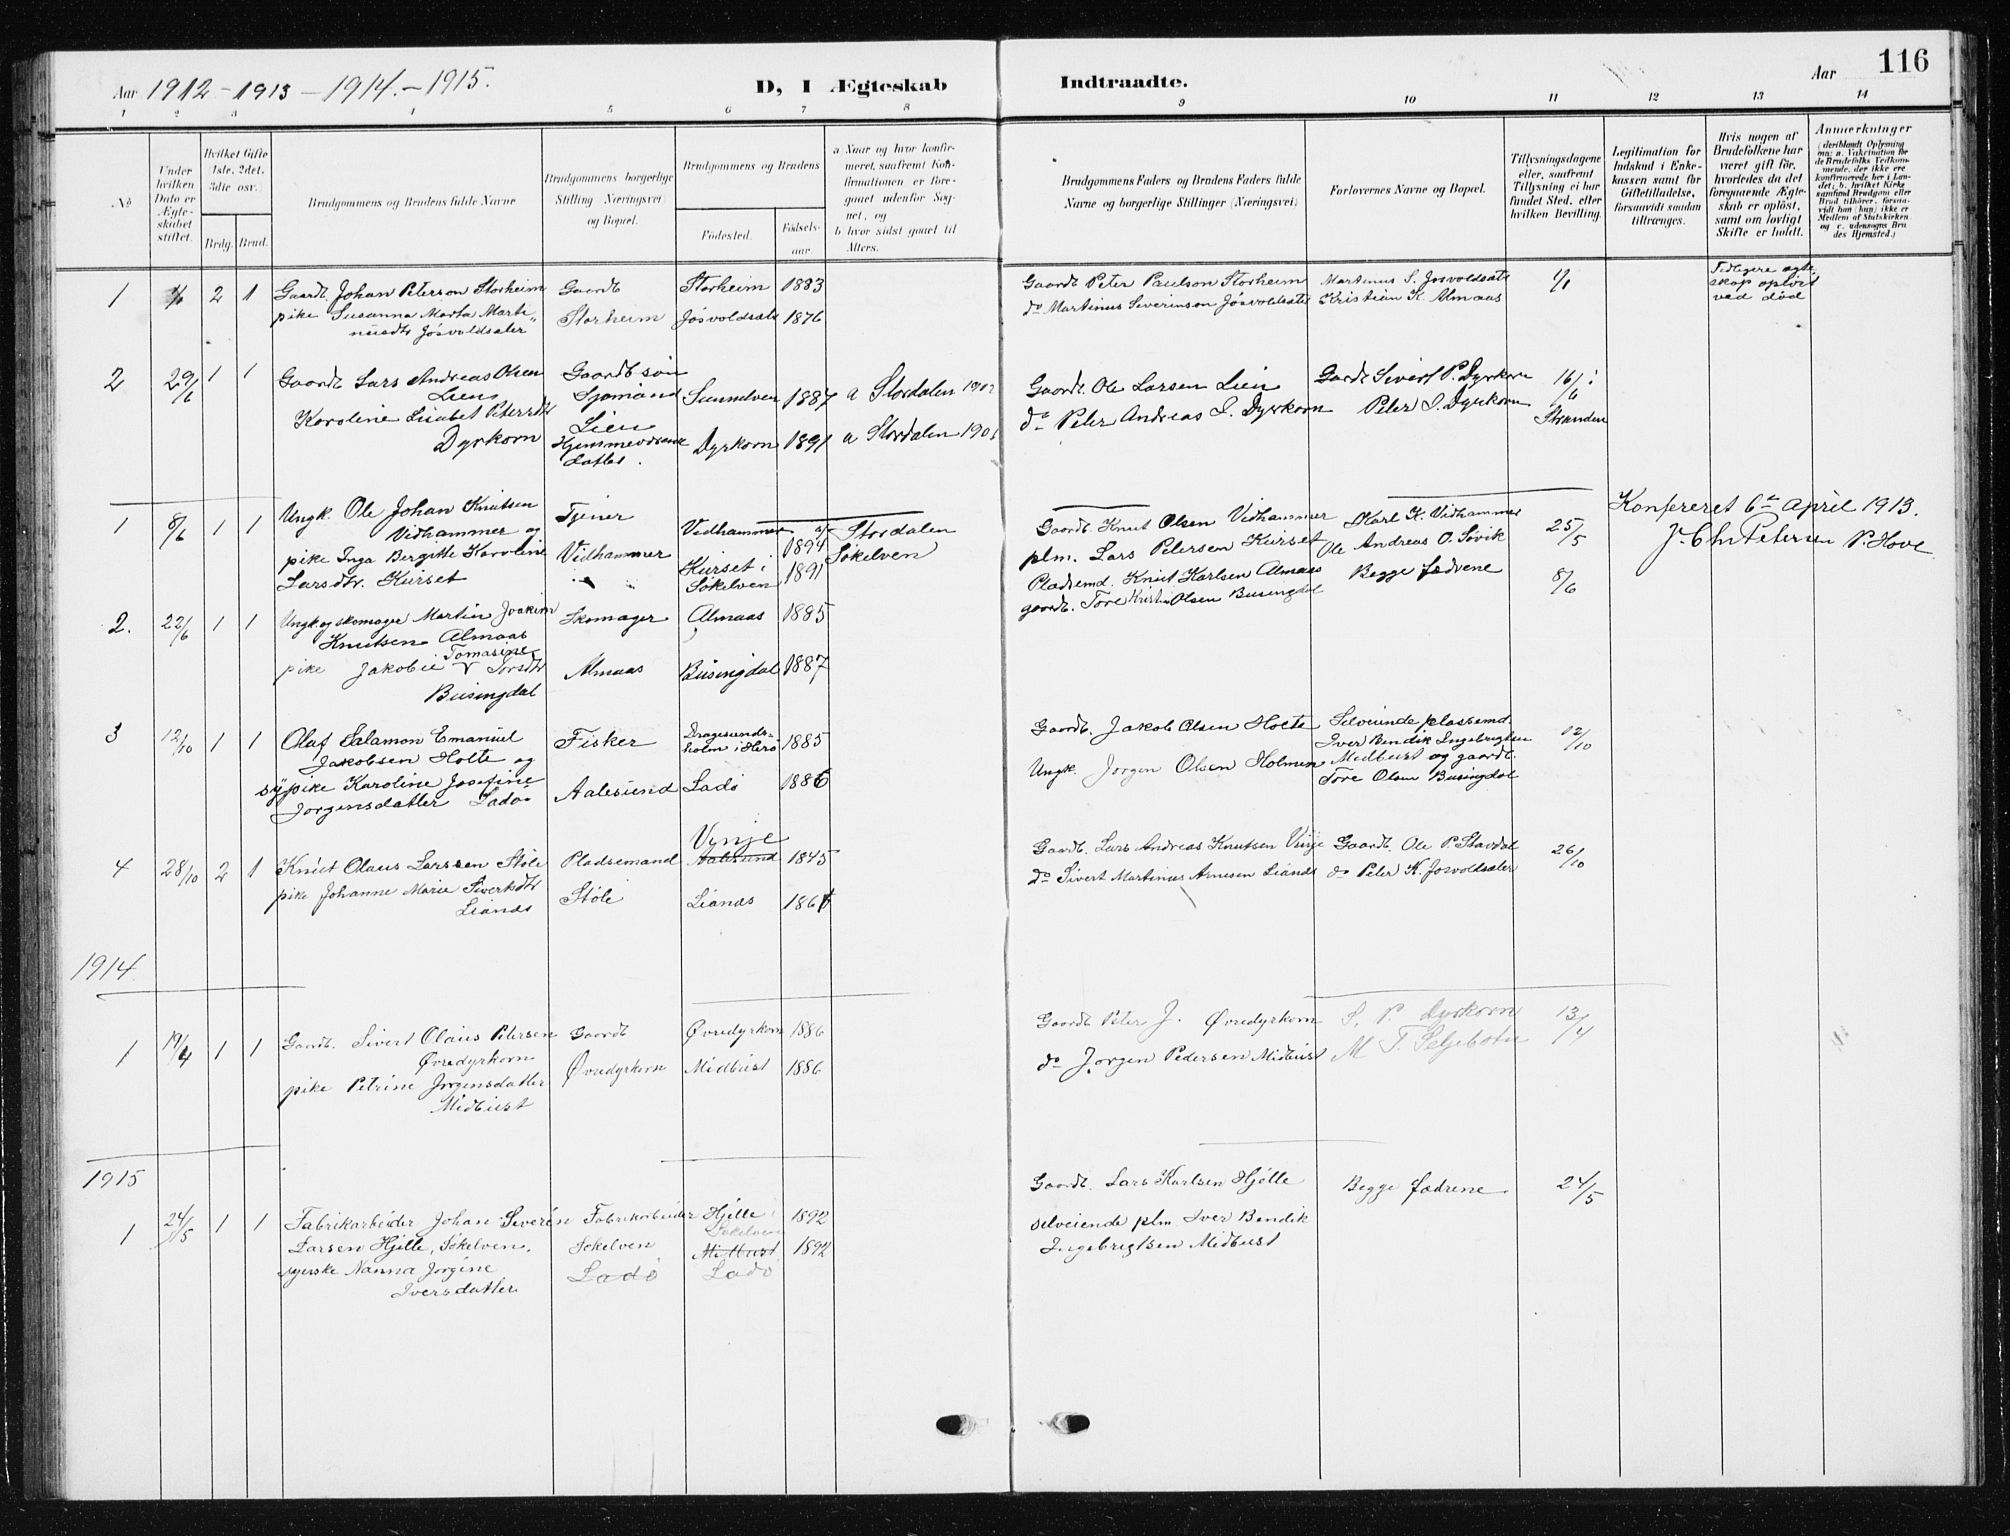 Aar 1912 - 1913 - 1914. - 1915.
D, I Ægteskab
Indtraadte.
Aar
116
1 2 3 4 5 6 7 8
9 10 11 12 13 14
No
Under hvilken Dato er Ægteskabet stiftet.
Hvilket Gifte (1ste, 2det, 3die osv.)
Brdg. Brud.
Brudgommens og Brudens fulde Navne
Brudgommens borgerlige Stilling (Næringsvei) og Bopæl.
Brudgommens og Brudens
Fødested.
Fødselsaar.
a Naar og hvor konfirmeret, saafremt Konfirmationen er foregaaet udenfor Sognet, og
b hvor sidst gaaet til Alters.
Brudgommens Faders og Brudens Faders fulde Navne og borgerlige Stillinger (Næringsvei)
Forlovernes Navne og Bopæl.
Tillysningsdagene eller, saafremt Tillysning ei har fundet Sted, efter hvilken Bevilling.
Legitimation for Indskud i Enkekassen samt for Giftetilladelse, forsaavidt saadan tiltrænges.
Hvis nogen af Brudefolkene har været gift før, hvorledes da det foregaaende Ægteskab er opløst, samt om lovligt Skifte er holdt.
Anmærkninger
1 2 1 Gaardt. Johan Peterson Storheim
pike Susanna Marta Marti-
nusdtr Jøsvoldsæter
Gaardt
Storheim
Storheim 1883
Jøsvoldsæt 1876
Gaardt Peter Paulson Storheim
do Martinus Severinson Jøsvoldsæte
Martinus S. Josvoldsæte
Kristian K. Almaas
Tidligere egte
skap opløst
ved død
2 29/6 1 1 Gaardt Lars Andreas Olsen
Lien
Karoline Lisabet Petersdtr
Dyrkorn
Gaardb søn
Sjømand
Lien
Hjemmeværende
datter.
Sunnelven 1887 a Stordalen
Dyrkorn 1891 a Stordalen
Gaardt. Ole Larsen Lien
do Peter Andreas I. Dyrkorn
Gardt Sivert P. Dyrkorn
Peter I. Dyrkorn
16/6 i
Stranden
1 8/6 1 1 Ungk. Ole Johan Knutsen
Vidhammer og
pike Inga Bergitte Karoline
Larsdtr. Kurset
Tjener
Vidhammer
Vidhammer 1894 Stordalen
Kurset i
Søkelven 1891 Søkelven
Gaardt. Knut Olsen Vidhammer
plm. Lars Petersen Kurset
Karl K. Vidhammer
Ole Andreas O. Sivik
25/5
Konfereret 6te april 1913.
J. Chr Petersen P. Hove
2. 22/6 1 1 Ungk. og skomager Martin Joakim
Knutsen Almaas
pike Jakobie Tomasine Toresdtr
Busingdal
Skomager
Almaas
Almaas 1885
Busingdal 1887
Pladsemd. Knut Karlsen Almaas
gaardt. Tore Kristin Olsen Busingdal
Begge fædrene
8/6
3 12/10 1 1 Olaf Salamon Emanuel
Jakobsen Holte og
sypike Karoline Josefine
Jorgensdatter Ladø
Fisker
Aalesund
Dragesunds-
holm i Herø 1885
Ladø 1886
Gaardt. Jakob Olsen Holte
Ungk. Jorgen Olsen Holmen
Selveiende plassemd.
Iver Bendik Ingebrigtsen
Midbust og gaardt.
Tore Olsen Busingdal
12/10
4 28/10 2 1 Knut Olaus Larssen Støle
pike Johanne Marie Sivertsdtr
Lianes
Pladsemand
Støle
Vynje
Aalesund 1845
Lianes
Gaardt. Lars Andreas Knutsen Vinje
do Sivert Martinus Arnesen Lianes
Gaardt. Ole P. Stavdal
do Peter K. Josvoldsæter
26/10
1914
1 19/4 1 1 Gaardt. Sivert Olaus Petersen
Øvredyrkorn
pike Petrine Jørgensdatter
Midbust
Gaardt
Øvredyrkorn
Øvredyrkorn 1886
Midbust 1886
Gaardt Peter J. Øvredyrkorn
do Jørgen Pedersen Midbust
S. P. Dyrkorn
M T. Seljebotn
13/4
1915
1 24/5 1 1 Fabrikarbeider Johan Severin
Larsen Hjelle, Søkelven.
syerske Nanna Jørgine
Iversdatter
Fabrikarbeider
Søkelven
Ladø
Hjelle i 1892
Søkelven
Midbust 1892
Ladø
Gaardt. Lars Karlsen Hjelle
selveiende plm. Iver Bendik
Ingebrigtsen Midbust
Begge fædrene
24/5